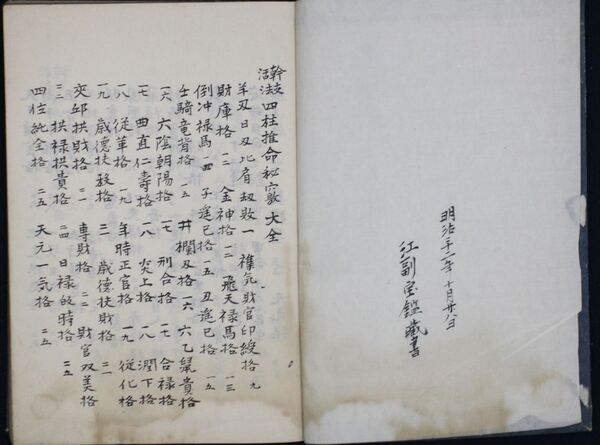 明治三二年十月廿八日
江副宝鑑蔵書
幹支四柱推命秘密大全
活法
羊刃日刃比肩劫敗 一 雜気財官印綬格 九
財庫格 一二 金神格 一二 飛天禄馬格 一三
倒冲禄馬 一四 子遥巳格 一五 丑遥巳格 一五
壬騎竜背格 一五 井欄叉格 一六 六乙鼠貴格
一六 六陰朝陽格 一七 刑合格 一七 合禄格
一七 曲直仁壽格 一八 炎上格 一八 潤下格
一八 従革格 一九 年時正官格 一九 従化格
一九 歳德扶殺格 二一 歳德扶財格 二一
夾邱拱財格 二一 専財格 二二 財官双美格
二二 拱禄拱貴格 二四 日禄皈時格 二五
四位純全格 二五 天元一気格 二五